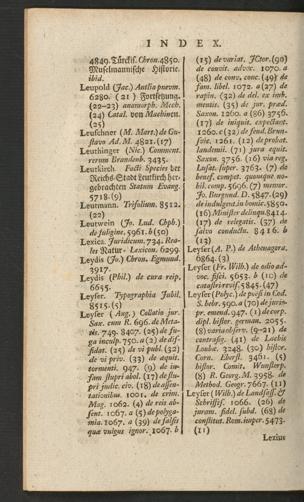 INDEX.
4849. Türckis. Chron. 4850.
Muselmannische Historie.
ibid.
Leupold (Jac.) Antlia pneum.
6280. (21) Fortsetzung.
(22-23) anamorph. Mech.
(24) Catal. von Machinen.
(25)
Leuschner (M. Mart.) de Gustavo
Ad. M. 4821. (17)
Leuthinger (Nic.) Comment.
rerum Brandenb. 3435.
Leutkirch. Facti species der
Reichs-Stadt
hergebrachten Statum Evang.
5718. (9)
Leutmann. Trifolium. 8512.
(22)
Leutwein (Jo. Lud. Chph.)
de fuligine. 5961. b (50)
Lexica. Juridicum. 734. Reales
Natur- Lexicon. 6299.
Leydis (Jo.) Chron. Egmund.
3917.
Leydis (Phil.) de cura reip.
6655.
Leyser. Typographia Jubil.
8515. (5)
Leyser (Aug.) Collatio jur.
Sax. cum R. 696. de Metatis.
749. 8407. (25) de fuga
inculp. 750. a (2) de diffidat.
(25) de vi publ. (32)
de vi priv. (33) de æquit.
tormenti. 947. (9) de infam
stupri abol. (17) de stupri
judic. eiv. (18) de assentationibus.
1001. de crim.
Mag. 1062. (4) de reis absent.
1067. a (5) de polygamia.
1067. a (39) de falsis
quæ vulgus ignor. 1067. b
(15) de variat. JCtor. (90)
de convit. advoc. 1070. a
(48) de conv. conc. (49) de
fam. libel. 1072. a (27) de
raptu. (32) de del. ex
(35) de jur. prad.
Saxon. 1260. a (86) 3756.
(17) de iniqua. expectant.
1260. c (32) de feud. Brunsvic.
1261. (12) de probat.
laudemii. (71) jura egals.
Saxon. 3756. (16) via reg.
Lusat. super. 3763. (7) de
benef. compet.
5696. (7) memor.
Jo. Burgund. D. 5847. (29)
de indulgent. in homic. 5850.
(16) Minister delinqu. 8414.
(17) de relegatis. (37) de
salvo conductu. 8416. b
(13)
Leyser (A. P.) de Athenagora.
6864. (3)
Leyser (Fr. Wilh.) de odio advoc.
fisci. 5653. b (10) de
5845. (47)
Leyser (Polyc.) de poësi in Cod.
S. hebr. 590. a (70) de jurispr.
emend. 947. (1) de corp.
dipl. histor. german. 2055.
(8) variae observ. (9-21) de
contrasig. (41) de Lucbis
Lonbac. 3248. (30) histor.
Corn. Eberst. 3461. (5)
histor. Comit. Wunstorp.
(8) R. Georg. M. 3958. de
Method. Geogr. 7667. (11)
Leyser (Wilh.) de Landsass. &
Schriftsass. 1066. (26) de
juram. fidel. subd. (68) de
constitut. Rom. imper. 5473.
(11)
Lexius